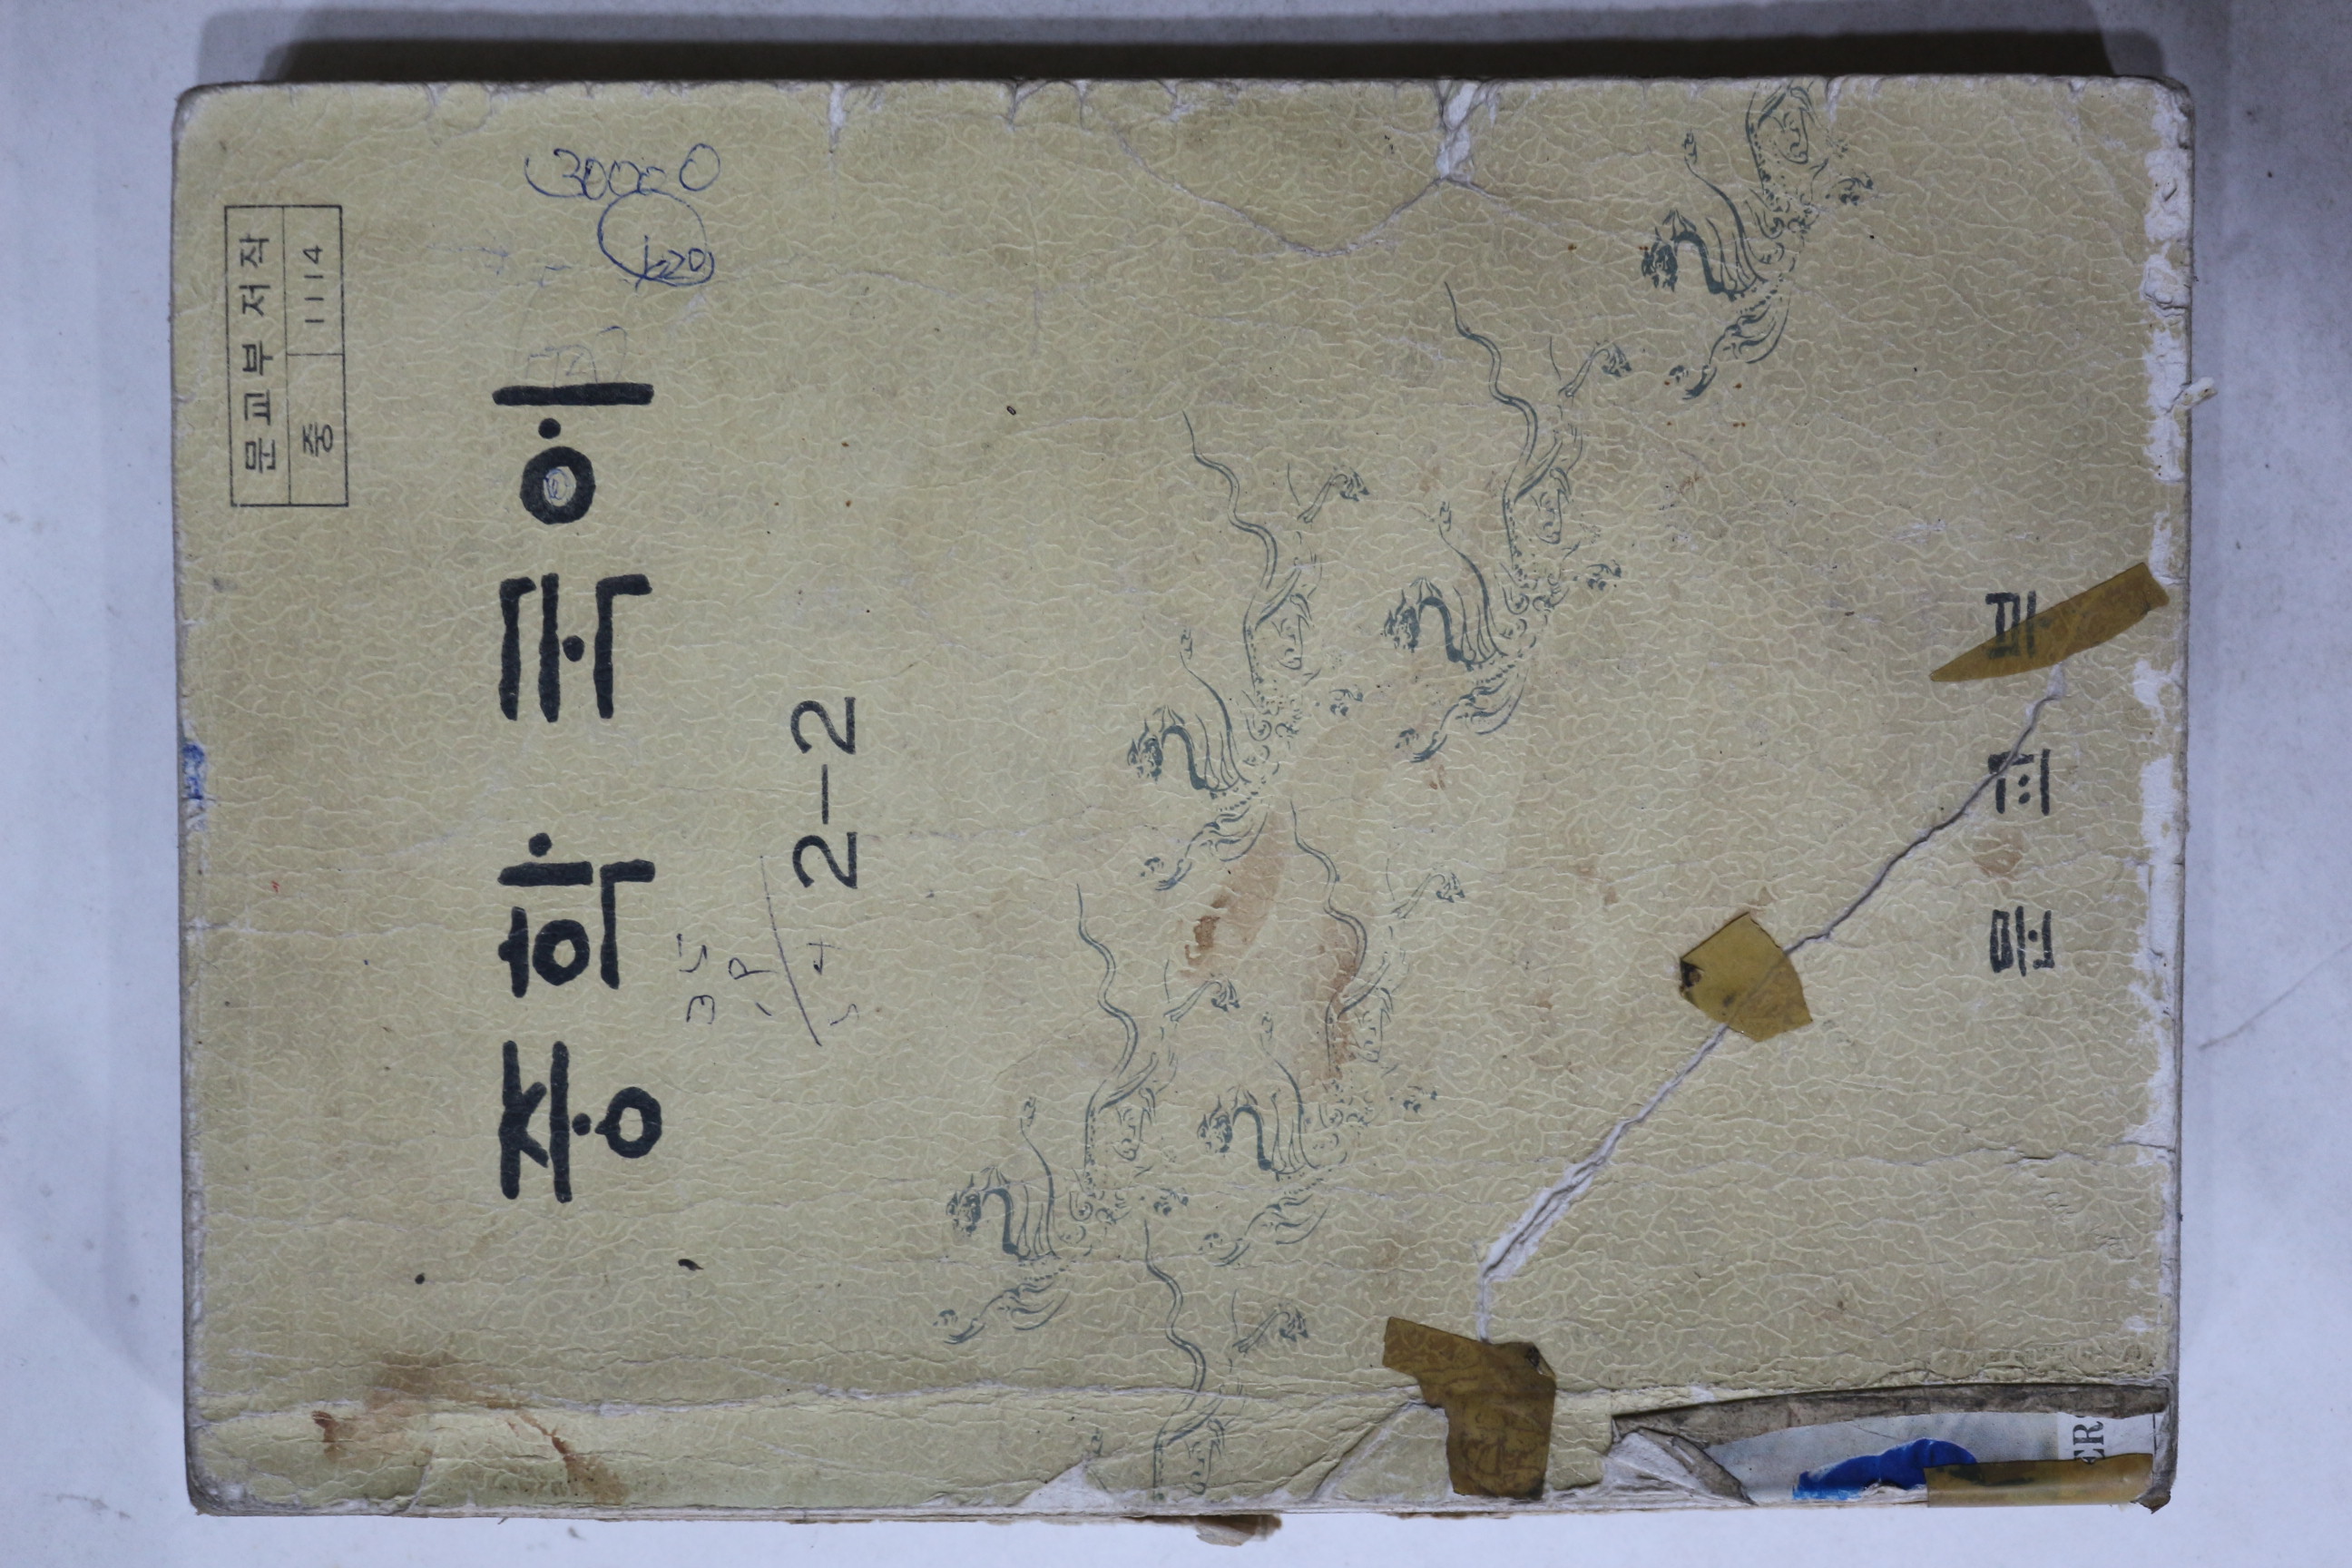 문교부 저작
중 1114
30000
중학 국어
2-2
문교부